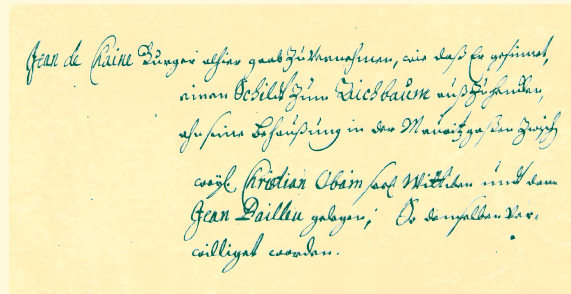 Jean de Chaine Burger alhier gab Zu Vernehmen, wie daß Er gesinnet,
einen Schildt Zum Eichbaum auß Zuhencken,
ahn seine behaußung in der Mauritzgaßen Zwisch
weyl. Christian Obein seel. Wittiben undt dem
Jean Dailleu gelegen, So demselben Ver-
williget worden.